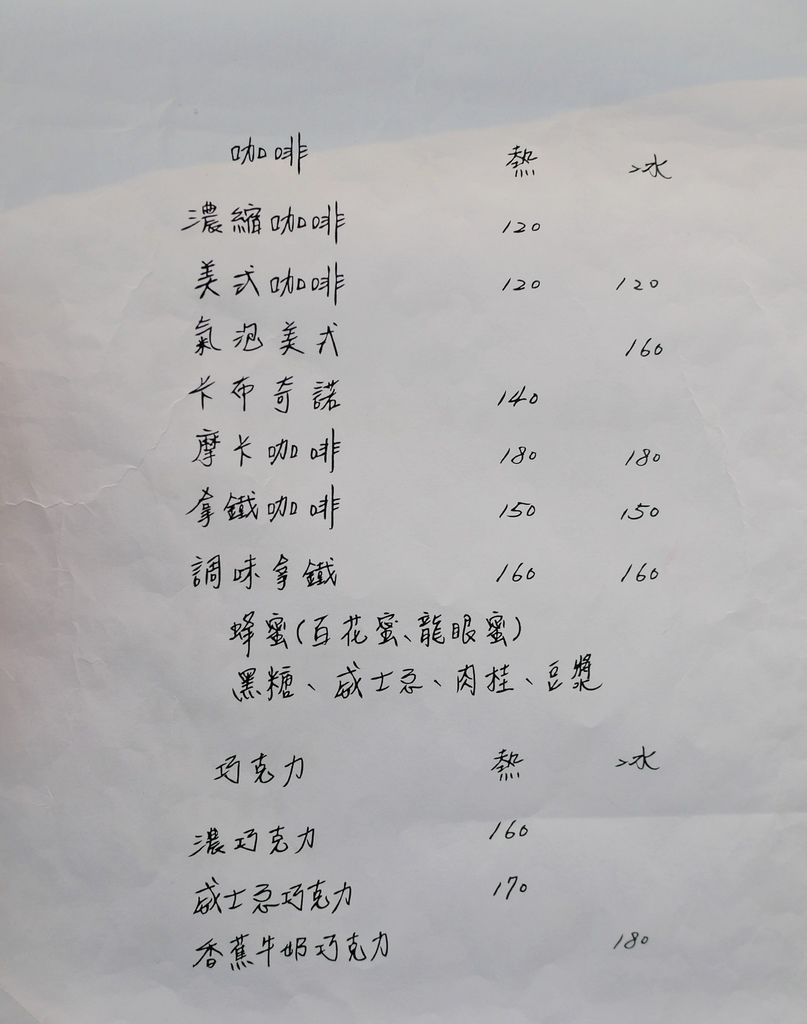 咖啡 熱 冰
濃縮咖啡 120
美式咖啡 120 120
氣泡美式 160
卡布奇諾 140
摩卡咖啡 180 180
拿鐵咖啡 150 150
調味拿鐵 160 160
蜂蜜(百花蜜、龍眼蜜)
黑糖、威士忌、肉桂、豆漿
巧克力 熱 冰
濃巧克力 160
威士忌巧克力 170
香蕉牛奶巧克力 180